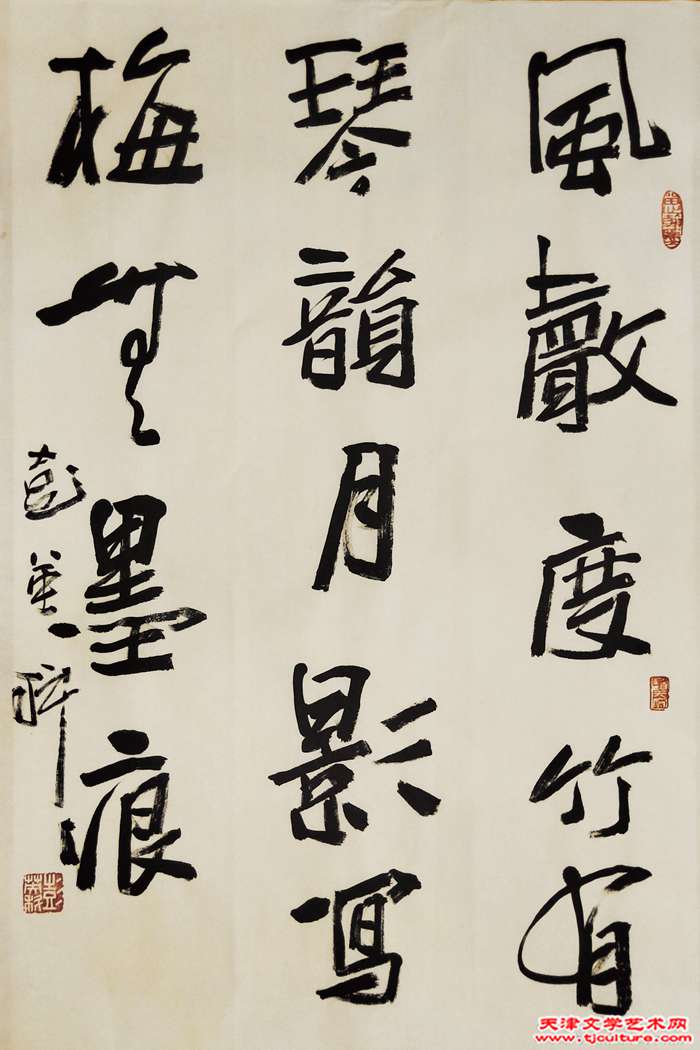 風聲度竹有
琴韻月影寫
梅無墨痕
彭英科
天津文学艺术网
www.tjculture.com